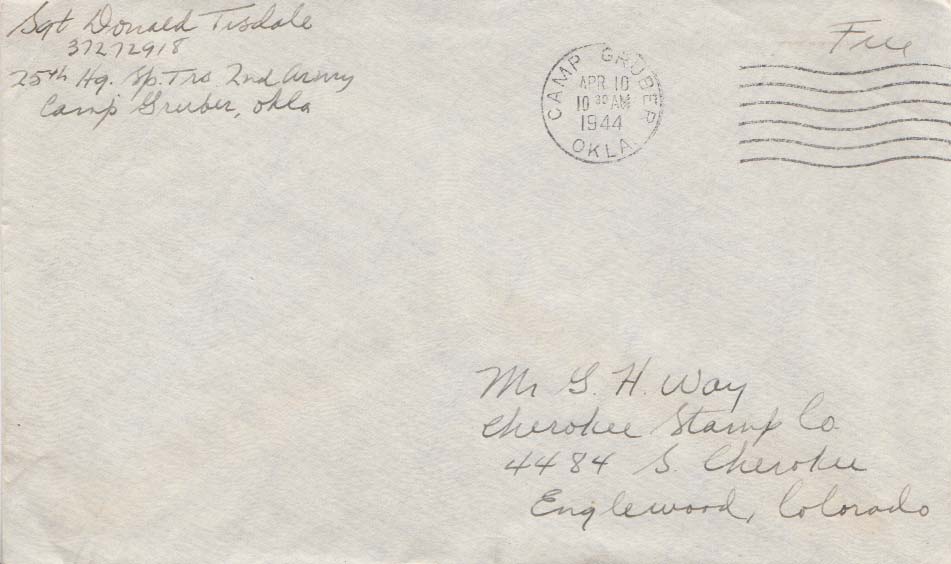 Sgt Donald Tisdale
37272918
25th Hq. Sp. Trs 2nd Army
Camp Gruber, Okla
Free
CAMP GRUBER
APR 10
10 30 AM
1944
OKLA.
Mr G. H. Way
Cherokee Stamp Co.
4484 S. Cherokee
Englewood, Colorado